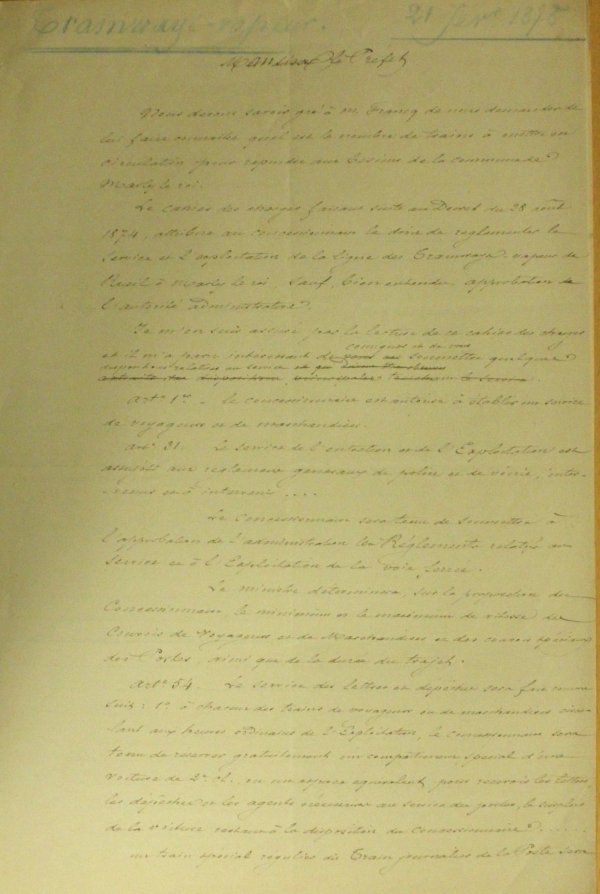 Tramway-vapeur. 21 1875
Monsieur le Préfet
Nous devons savoir gré à M. Francq de nous demander de
lui faire connaître quel est le nombre de trains à mettre en
circulation pour répondre aux besoins de la commune de
Marly le roi.
Le cahier des charges faisant suite au Décret du 28 août
1874, attribue au concessionnaire le droit de réglementer le
service et l'exploitation de la ligne des Tramways-vapeur de
Rueil à Marly le roi, sauf, bien entendu, approbation de
l'autorité administrative.
Je m'en suis assuré par la lecture de ce cahier des charges
et il m'a paru intéressant de soumettre quelques
dispositions relatives au service
Artle 1er. le concessionnaire est autorisé à établir un service
de voyageurs et de marchandises.
art. 31. Le service de l'entretien et de l'Exploitation est
assujetti aux règlements généraux de police et de voirie, inter-
venus et à intervenir ....
Le Concessionnaire sera tenu de soumettre à
l'approbation de l'administration les Réglements relatifs au
service et à l'Exploitation de la voie ferrée.
Le ministre déterminera, sur la proposition du
Concessionnaire, le minimum et le maximum de vitesse des
Convois de Voyageurs et de Marchandises et des convois spéciaux
des Postes, ainsi que de la durée du trajet.
Artle 54. Le service des lettres et dépêches sera fait comme
suit: 1° à chacun des trains de voyageurs ou de marchandises circu-
lant aux heures ordinaires de l'Exploitation, le concessionnaire sera
tenu de réserver gratuitement un compartiment spécial d'une
voiture de 2e cl. ou un espace équivalent, pour recevoir les lettres,
les dépêches et les agents nécessaires au service des postes, le surplus
de la voiture restant à la disposition du concessionnaire ......
un train spécial régulier dit Train journalier de la Poste sera